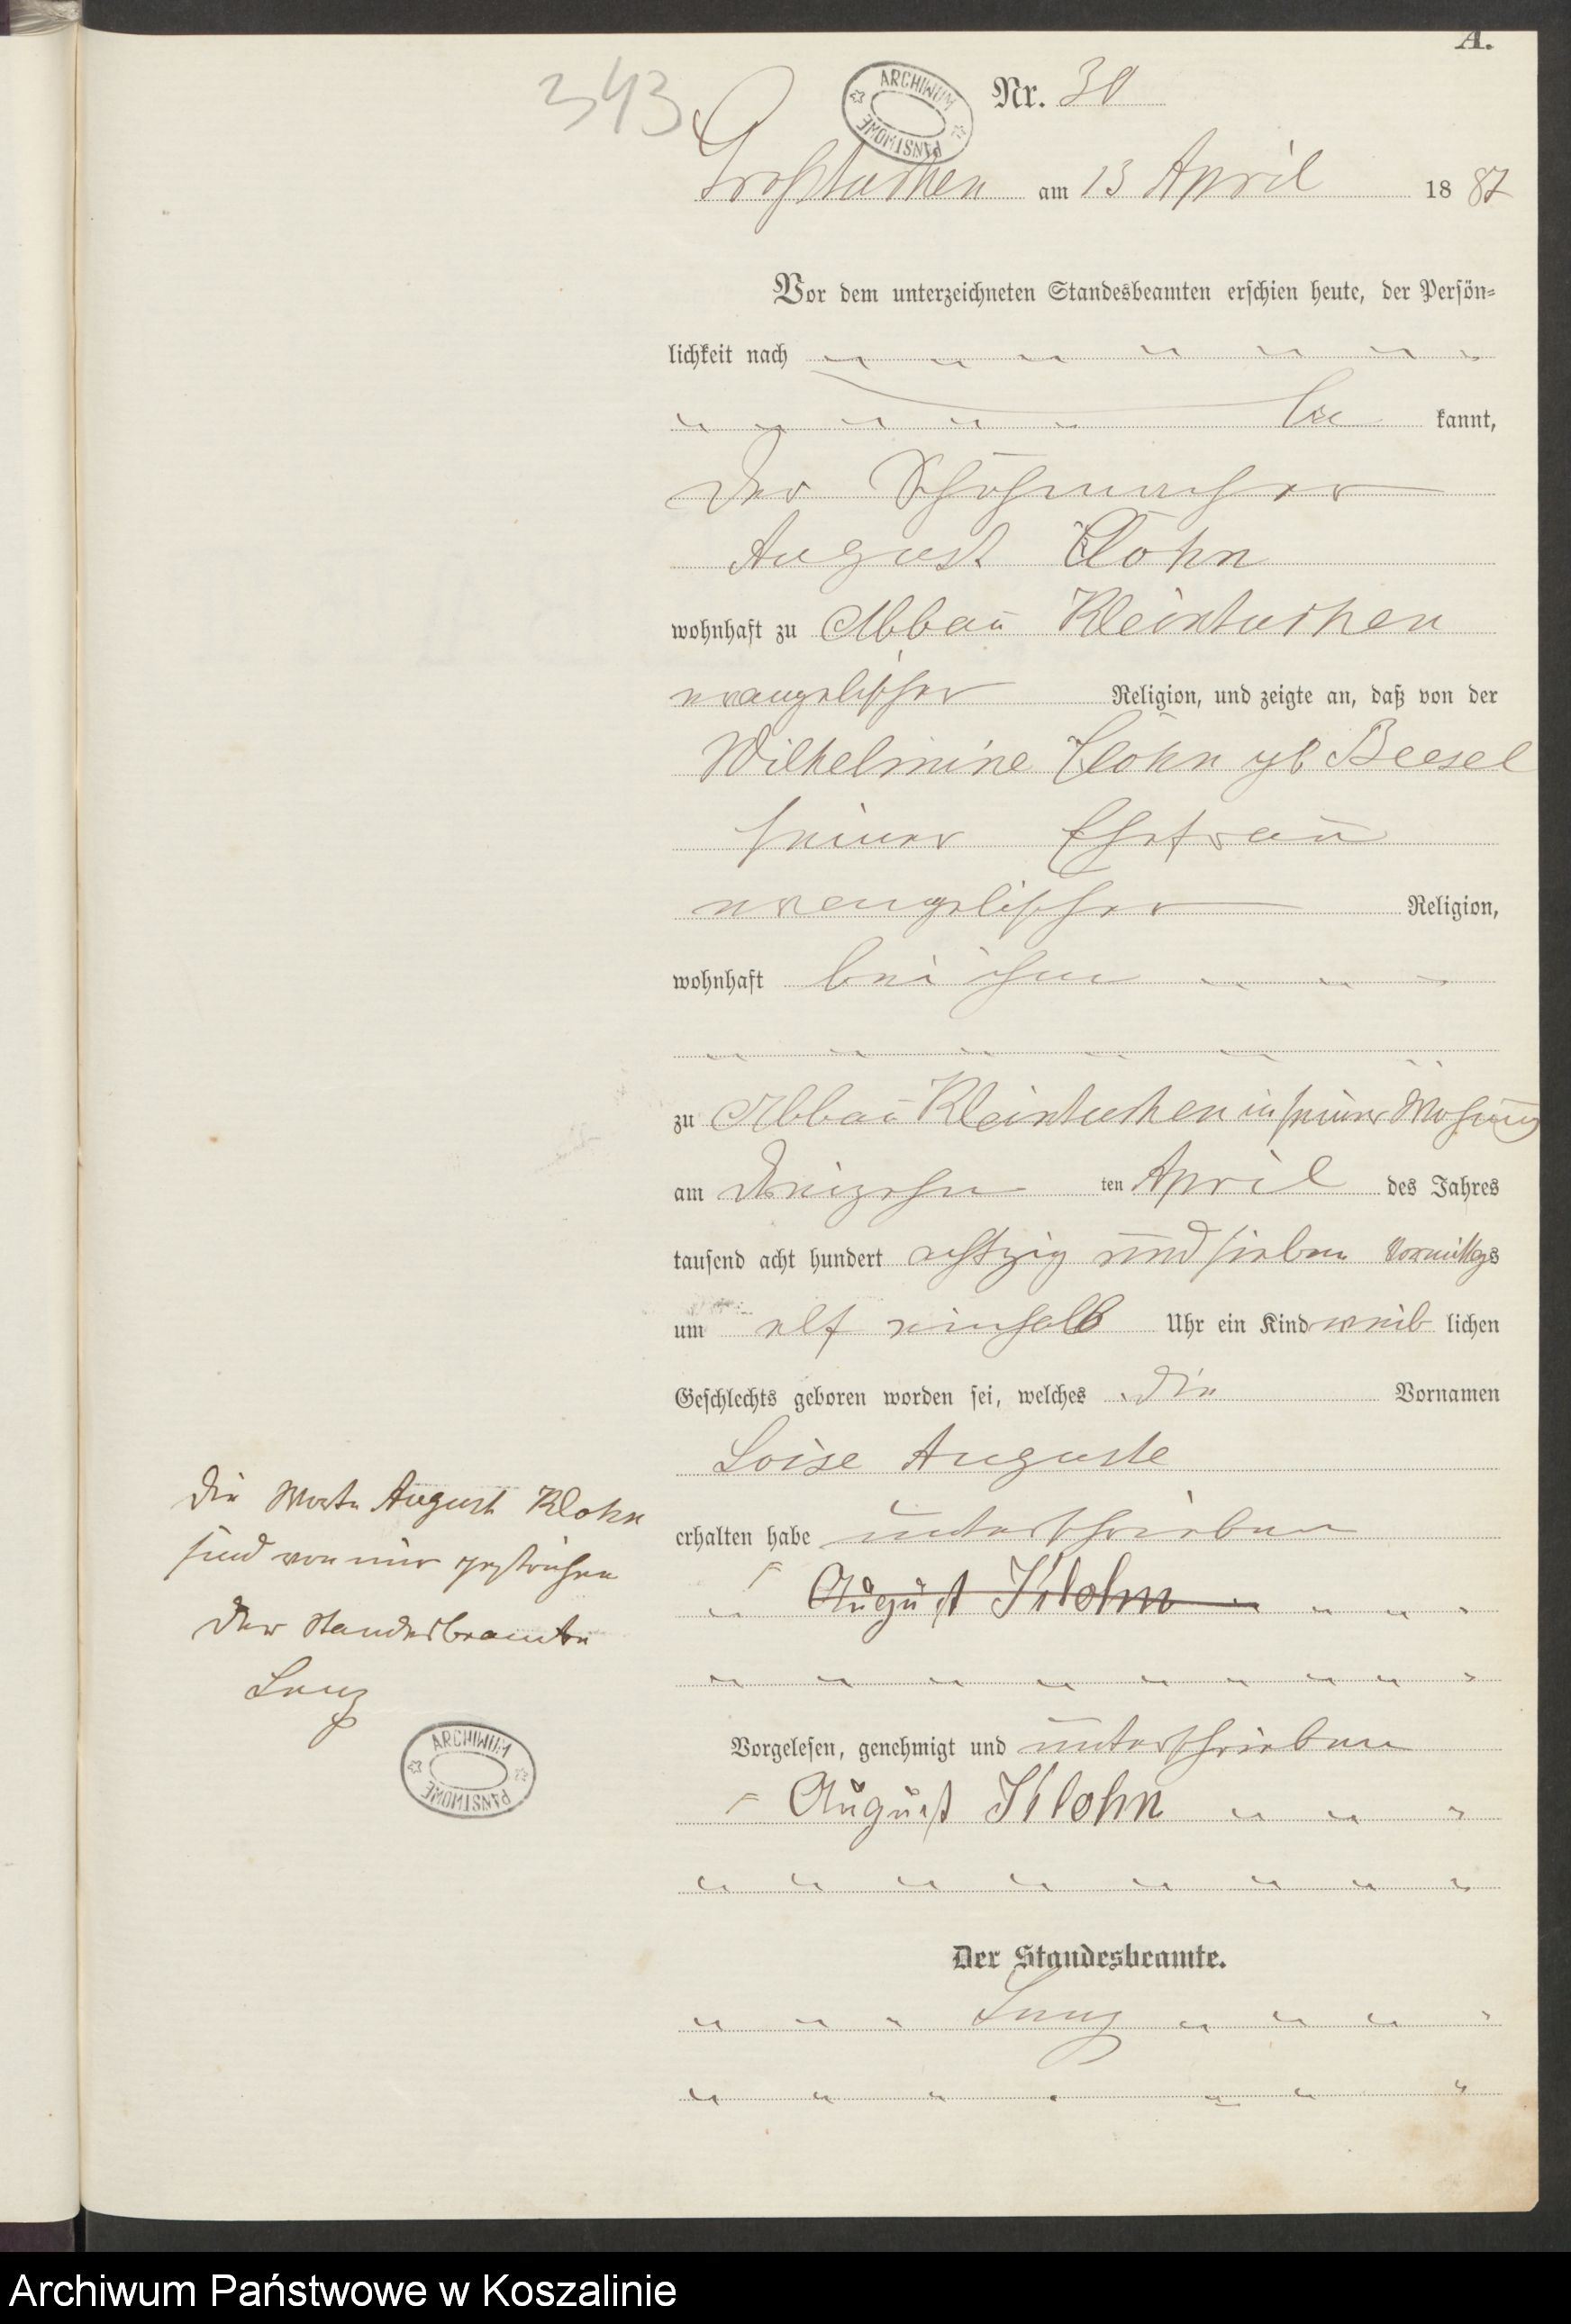 A.
343
ARCHIWUM PAŃSTWOWE
Nr. 30
Großtuchen am 13 April 1887
Vor dem unterzeichneten Standesbeamten erschien heute, der Persön-
lichkeit nach
be kannt,
der Schuhmacher
August Clohn
wohnhaft zu Abbau Kleintuchen
evangelischer Religion, und zeigte an, daß von der
Wilhelmine Clohn geb Beesel
seiner Ehefrau
evangelischer Religion,
wohnhaft bei ihm
zu Abbau Kleintuchen in seiner Wohnung
am dreizehn ten April des Jahres
tausend acht hundert achtzig und sieben Vormittags
um elf einhalb Uhr ein Kind weib lichen
Geschlechts geboren worden sei, welches die Vornamen
Loise Auguste
erhalten habe unterschrieben
August Klohn
Vorgelesen, genehmigt und unterschrieben
August Klohn
Der Standesbeamte.
Die Worte August Klohn
sind von mir gestrichen
Der Standesbeamte
ARCHIWUM PAŃSTWOWE
Archiwum Państwowe w Koszalinie